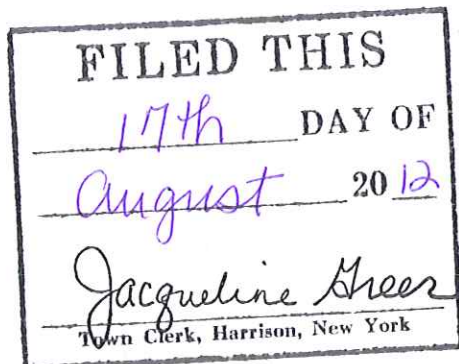 FILED THIS
17th DAY OF
August 20 12
Jacqueline Greer
Town Clerk, Harrison, New York